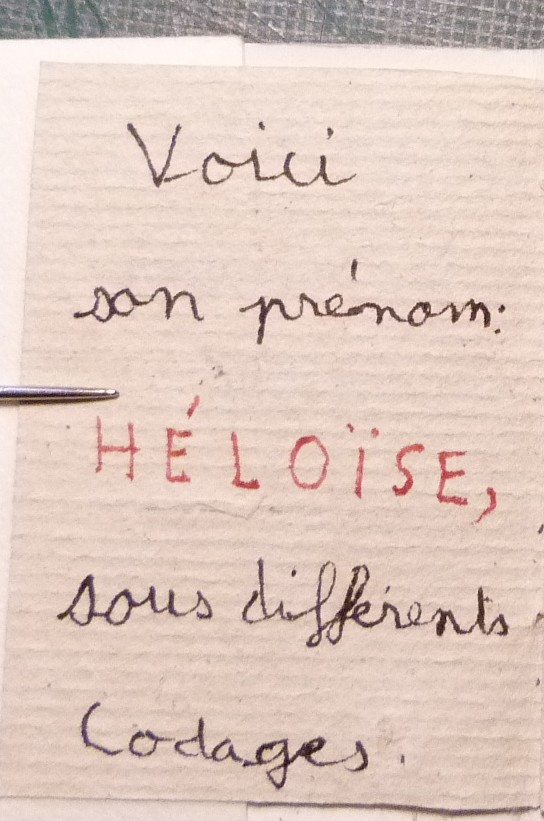 Voici
son prénom:
HÉLOÏSE,
sous différents
Codages.